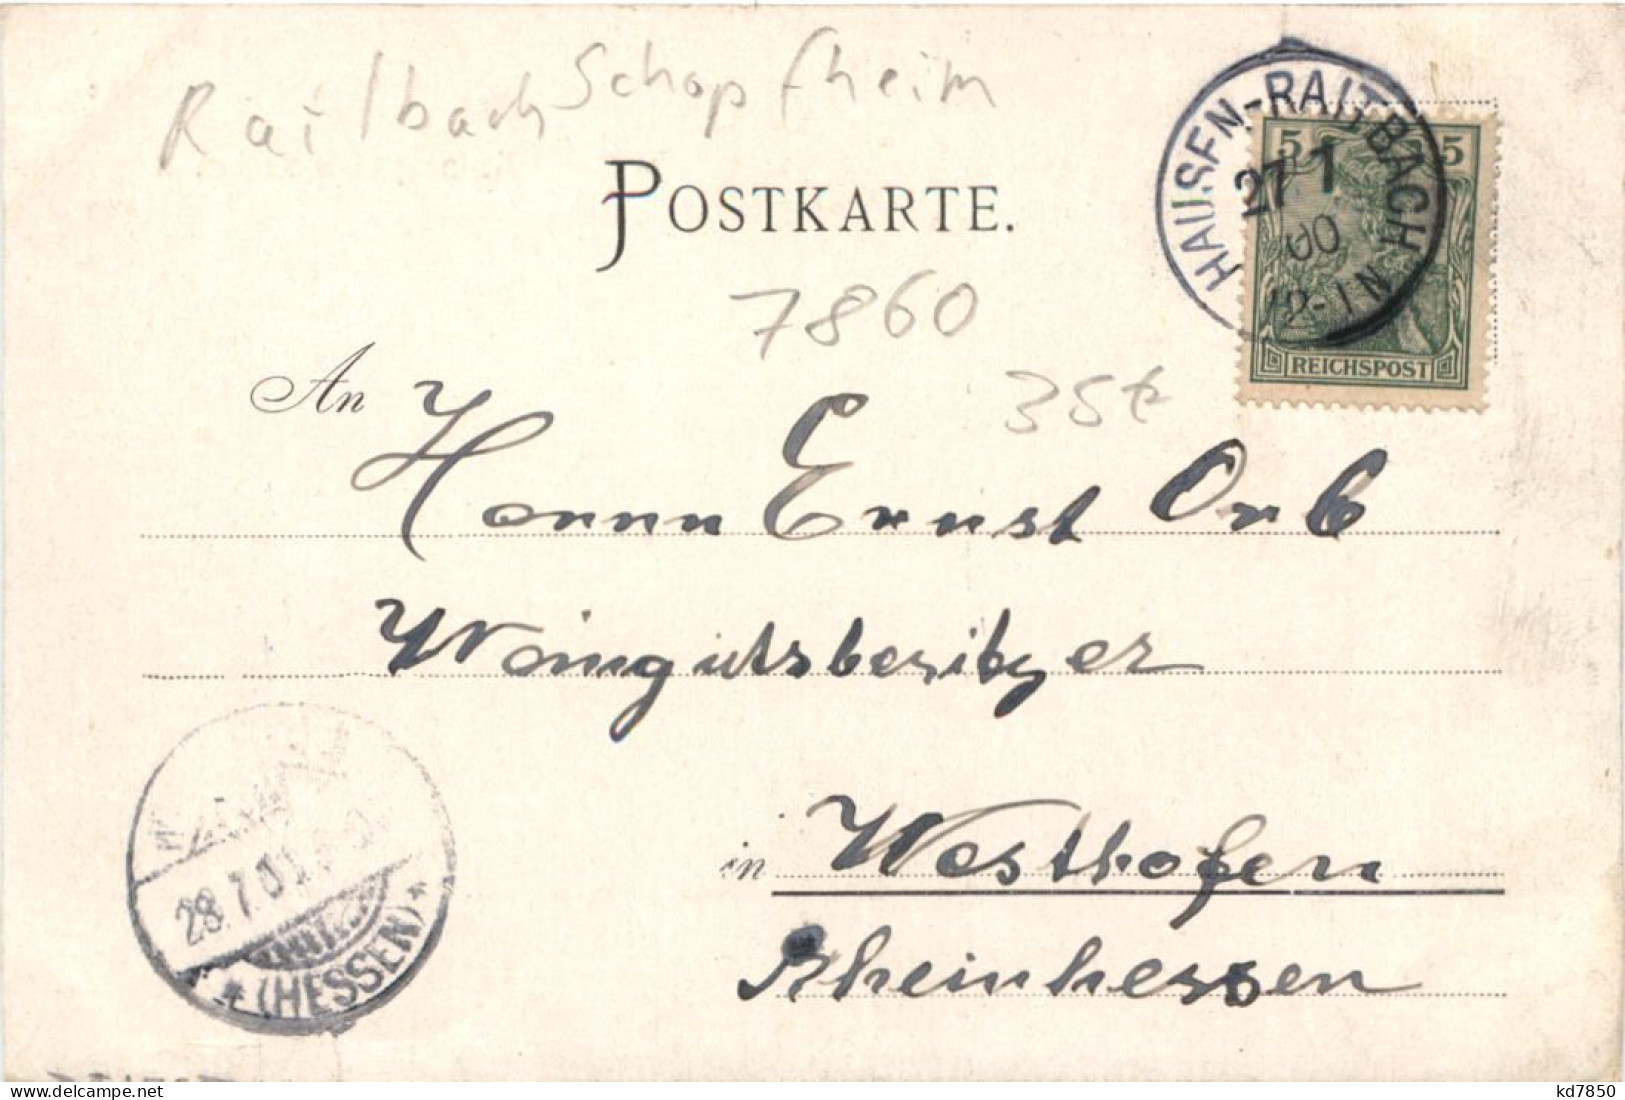 Railbach Schopfheim
HAUSEN-RAITBACH
27 1
00
12-1N
5 5
REICHSPOST
POSTKARTE.
7860
35€
An Herrn Ernst Orb
Weingutsbesitzer
in Westhofen
Rheinhessen
28.7.0
(HESSEN)
kd7850